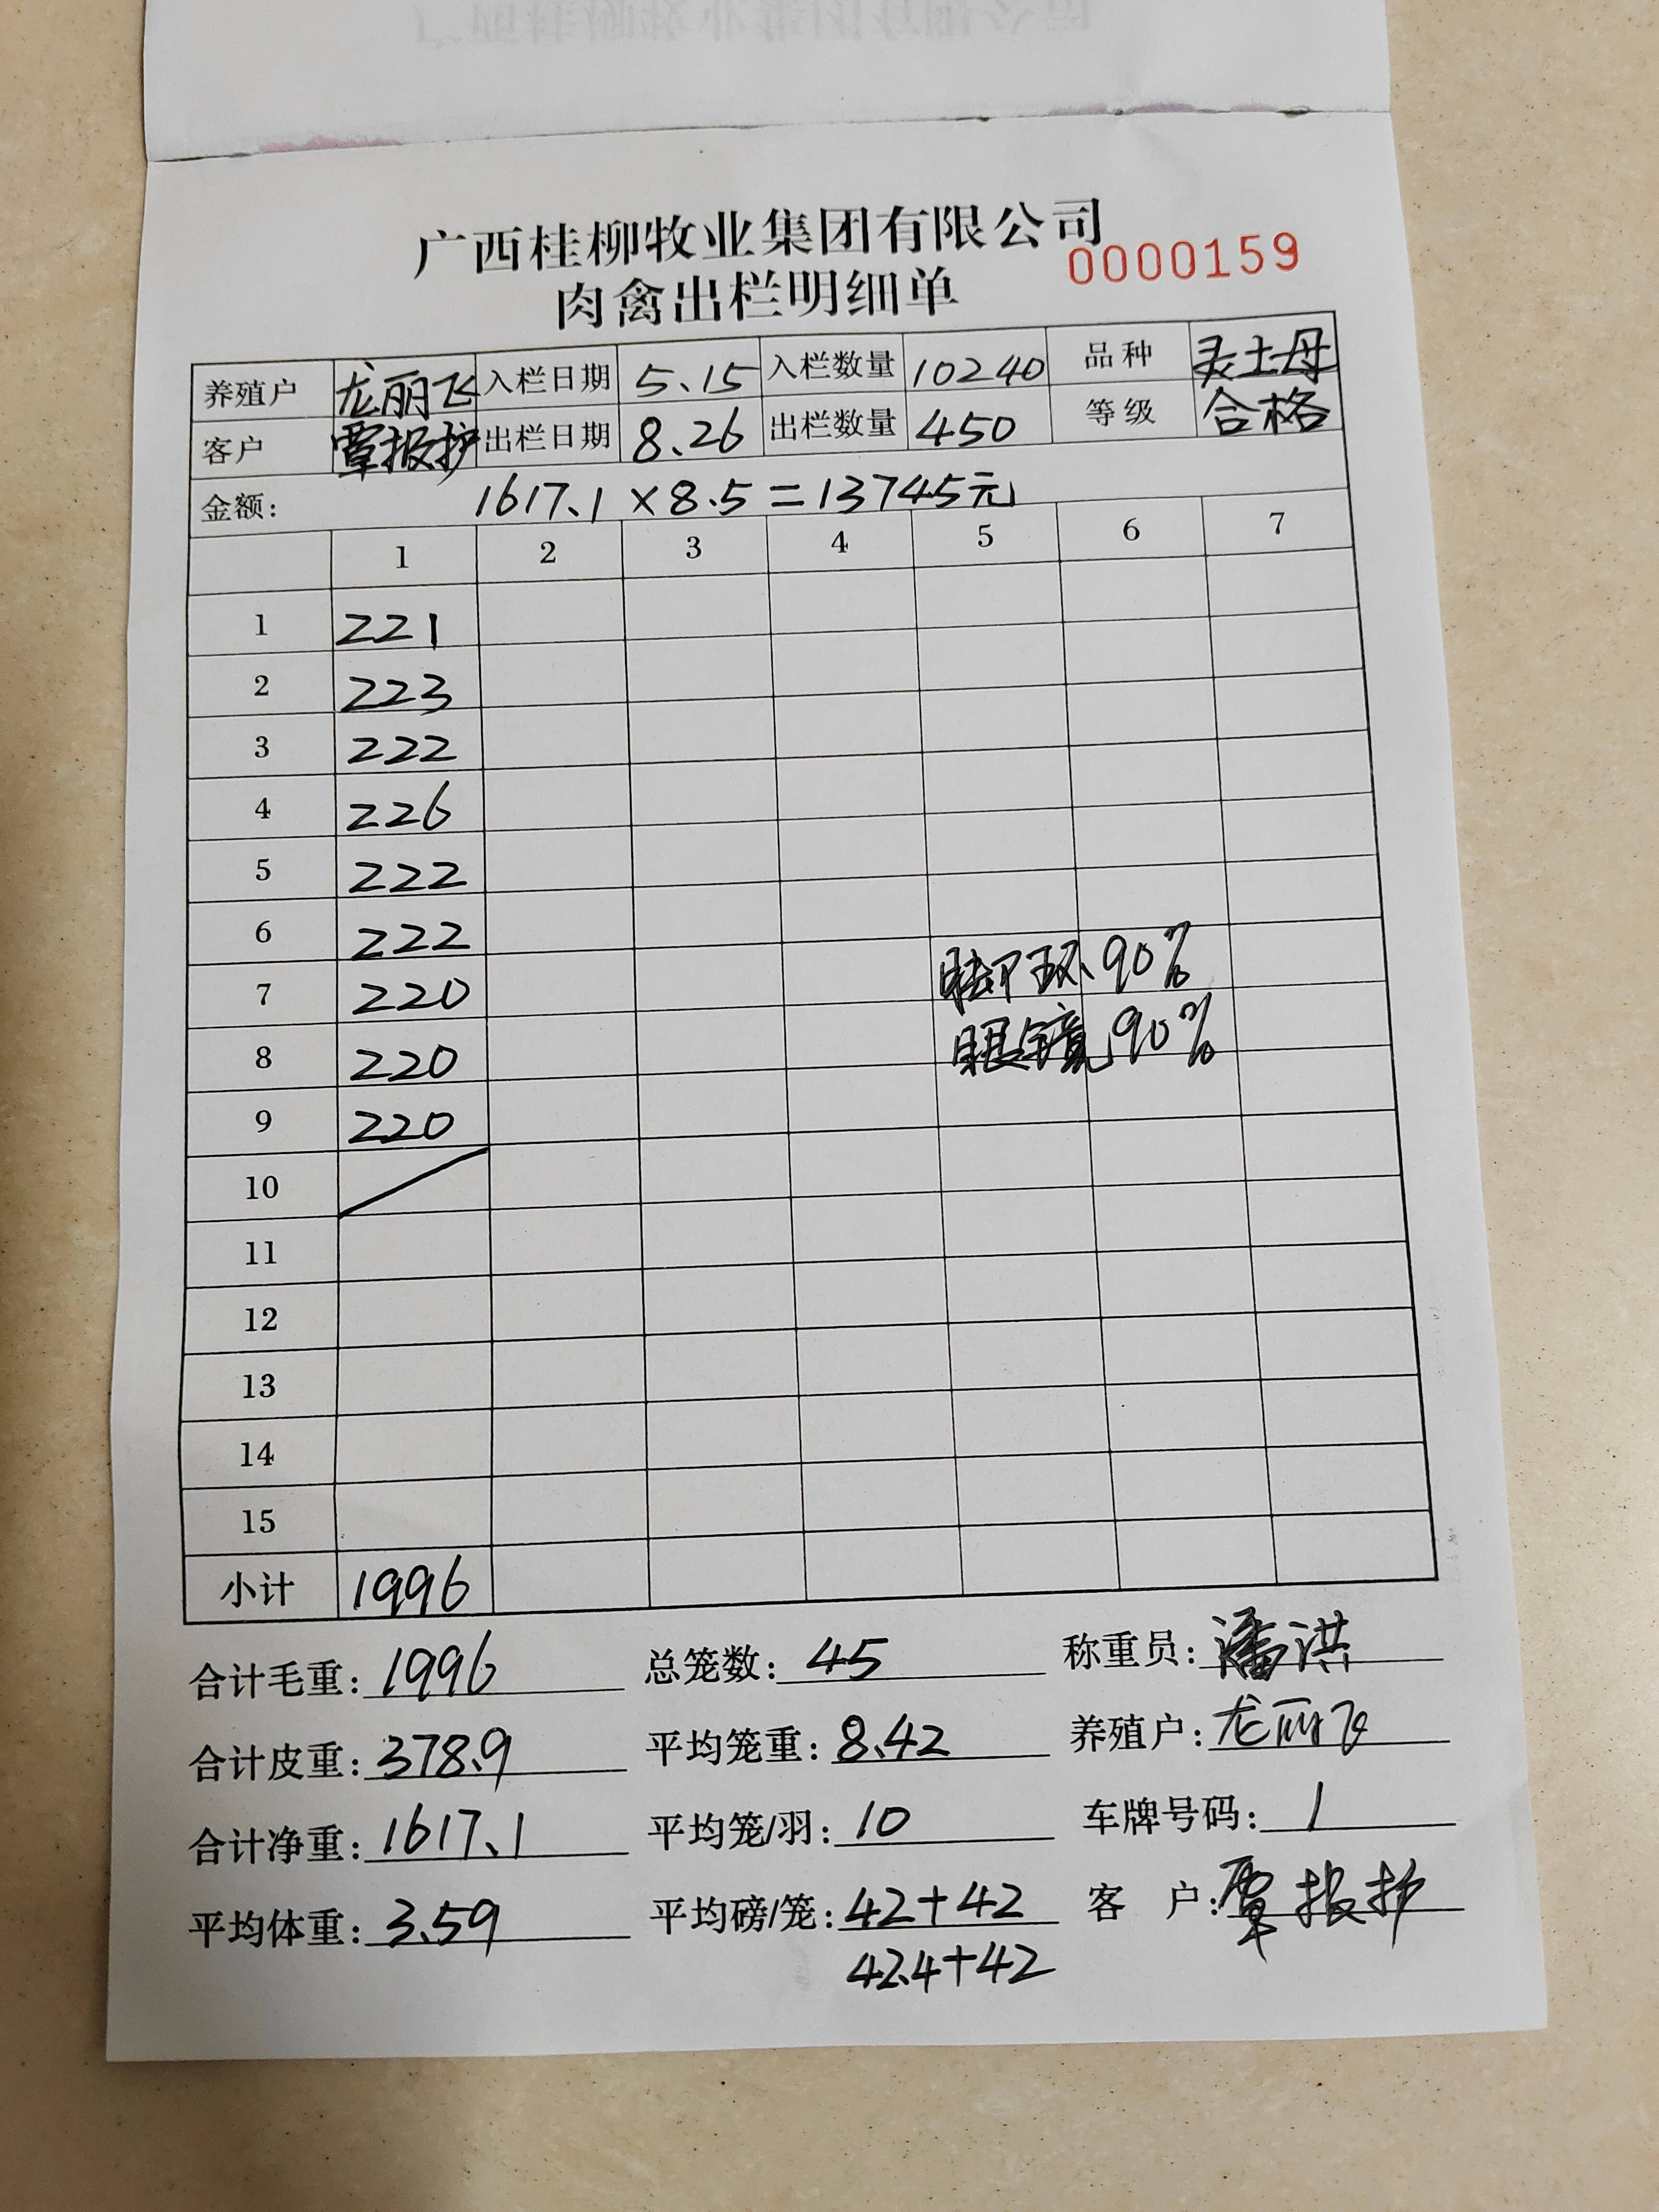 广西桂柳牧业集团有限公司
0000159
肉禽出栏明细单
养殖户 龙丽飞 入栏日期 5.15 入栏数量 10240 品种 灵土母
客户 覃报护 出栏日期 8.26 出栏数量 450 等级 合格
金额: 1617.1×8.5=13745元
1 2 3 4 5 6 7
1 221
2 223
3 222
4 226
5 222
6 222
7 220 脚环90%
8 220 眼镜90%
9 220
10
11
12
13
14
15
小计 1996
合计毛重: 1996 总笼数: 45 称重员: 潘洪
合计皮重: 378.9 平均笼重: 8.42 养殖户: 龙丽飞
合计净重: 1617.1 平均笼/羽: 10 车牌号码: 1
平均体重: 3.59 平均磅/笼: 42+42 客户: 覃报护
42.4+42